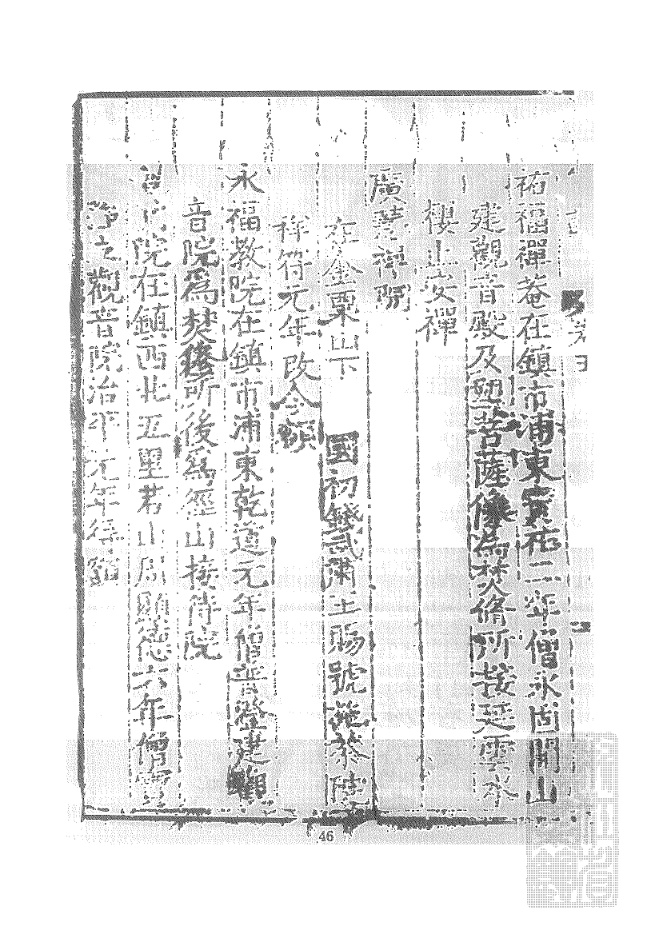 祐福禪菴在鎮市浦東寶祐二年僧永固開山
建觀音殿及塑菩薩像為焚修所接延雲水
棲止安禪
廣慧禪院
在金粟山下 國初錢武肅王賜號施茶
祥符元年改今額
永福教院在鎮市浦東乾道元年僧普澄建觀
音院爲焚修所後爲徑山接待院
院在鎮西北五里君山周顯德六年僧
觀音院治平元年
46